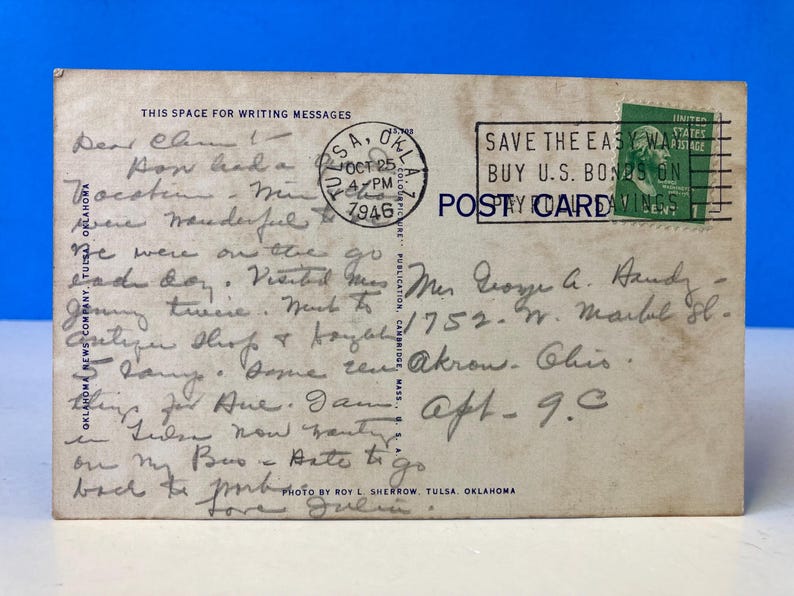 THIS SPACE FOR WRITING MESSAGES
Dear
had a
Vacation
were wonderful to
were on the go
each day. Visited
Jimmy twice. Went to
shop & bought
5 lamps. Some
thing for
in Tulsa now waiting
on my Bus - Hate to go
back to work.
Love Julia.
OKLAHOMA NEWS COMPANY, TULSA, OKLAHOMA
15,703
"COLOURPICTURE" PUBLICATION, CAMBRIDGE, MASS., U. S. A.
TULSA, OKLA. 1
OCT 25
4 - PM
1946
SAVE THE EASY WAY
BUY U.S. BONDS ON
PAYROLL SAVINGS
UNITED
STATES
POSTAGE
WASHINGTON
CENT 1
POST CARD
Mrs George A. Handy -
1752 - W. Market St -
Akron - Ohio.
Apt - 9. C
PHOTO BY ROY L. SHERROW, TULSA, OKLAHOMA